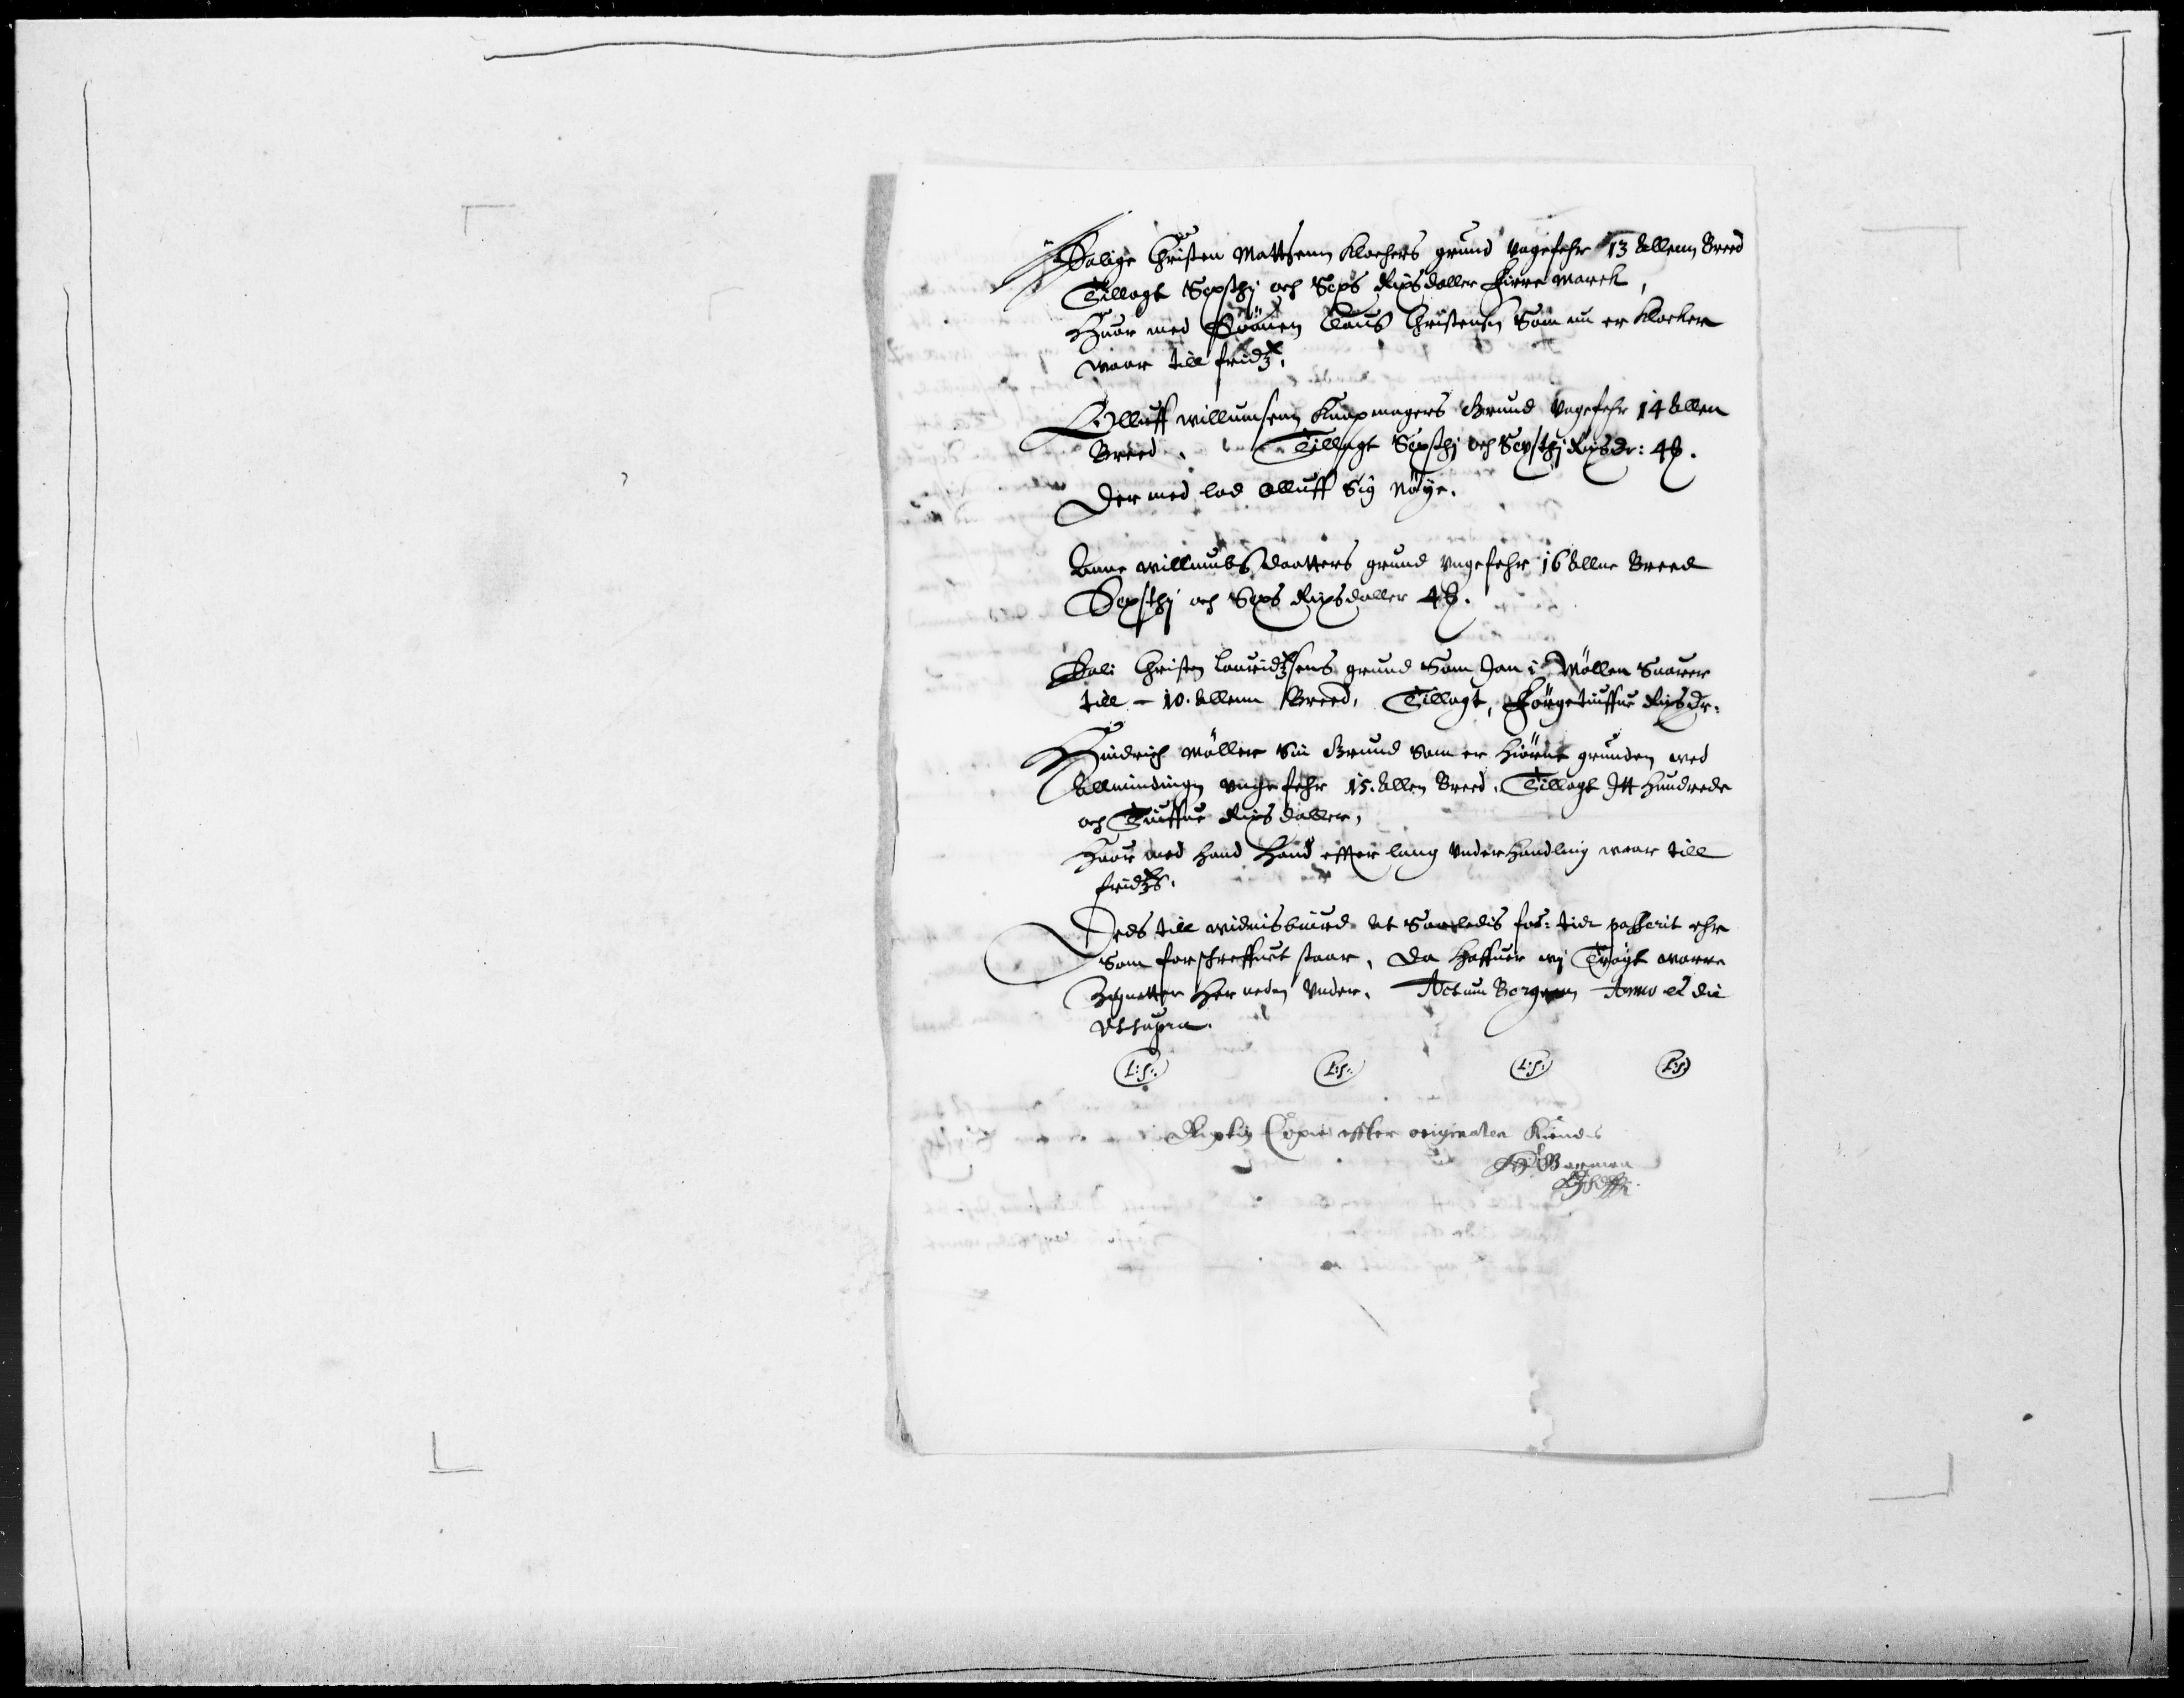 Salige Christen Mattsenn Klochers grund vngefehr 13 Allenn Breed
Tillagt Sexsthj och Sexs Rixsdaller fire Marck,
Huor med Sönen Claus Christensen Som nu er Klocker
waar till fridz,
Olluff willumsenn Knapmagers Grund vngefehr 14 Allen
Breed. Tillagt Sexsthj och Sexsthj Rixsdr: 4 ß.
Der med lod Olluff Sig nöye.
Anne willumbs daatters grund vngefehr 16 Allne Breed
Sexsthj och Sexs Rixsdaller 4 ß.
Sali: Christen Lauridzsens grund Som Jan i Möllen Suarer
till – 10. Allenn Breed, Tillagt, Förgetiuffue Rixsdr.
Hindrich Möller Sin Grund som er hiörne grunden wed
Allmindingen vngefehr 15. Allen Breed, Tillagt Itt hundrede
och Tiuffue Rixsdaller,
Huor med hand effter lang vnderhandling waar till
fridzs.
Deds till widnisbiurd at Saaledis for: tidt passerit ehr
Som forschreffuet staar, Da haffuer wj Trögt worre
Zignetter her neden vnder. Actum Bergenn Anno et die
vt supra.
L:S: L:S: L:S: L:S
Rigtig Copie effter originalen Kiendis